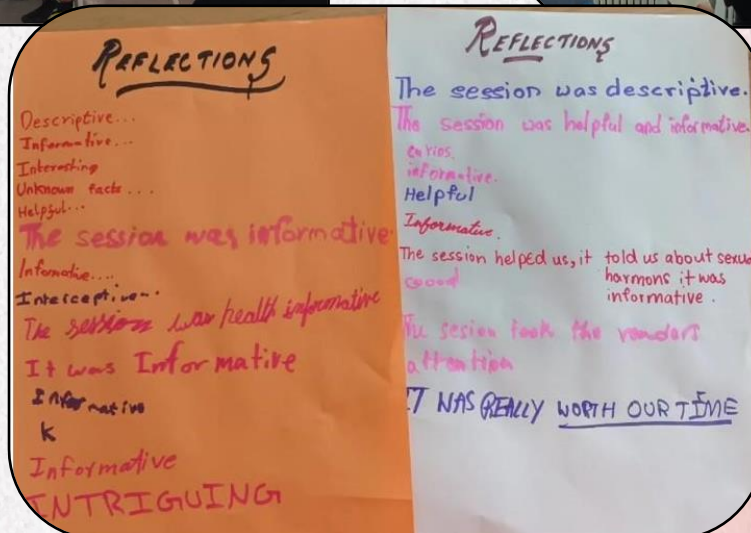 REFLECTIONS
Descriptive...
Informative...
Interesting
Unknown facts...
Helpful...
The session was informative
Informative....
Interceptive...
The session was health informative
It was Informative
Informative
K
Informative
INTRIGUING
REFLECTIONS
The session was descriptive.
The session was helpful and informative.
informative.
Helpful
Informative.
The session helped us, it told us about sexual
harmons it was
informative.
Good
The sesion took the
attention
IT WAS REALLY WORTH OUR TIME